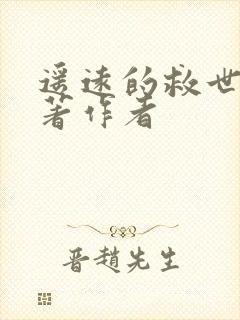 遥远的救世
著作者
晋赵先生